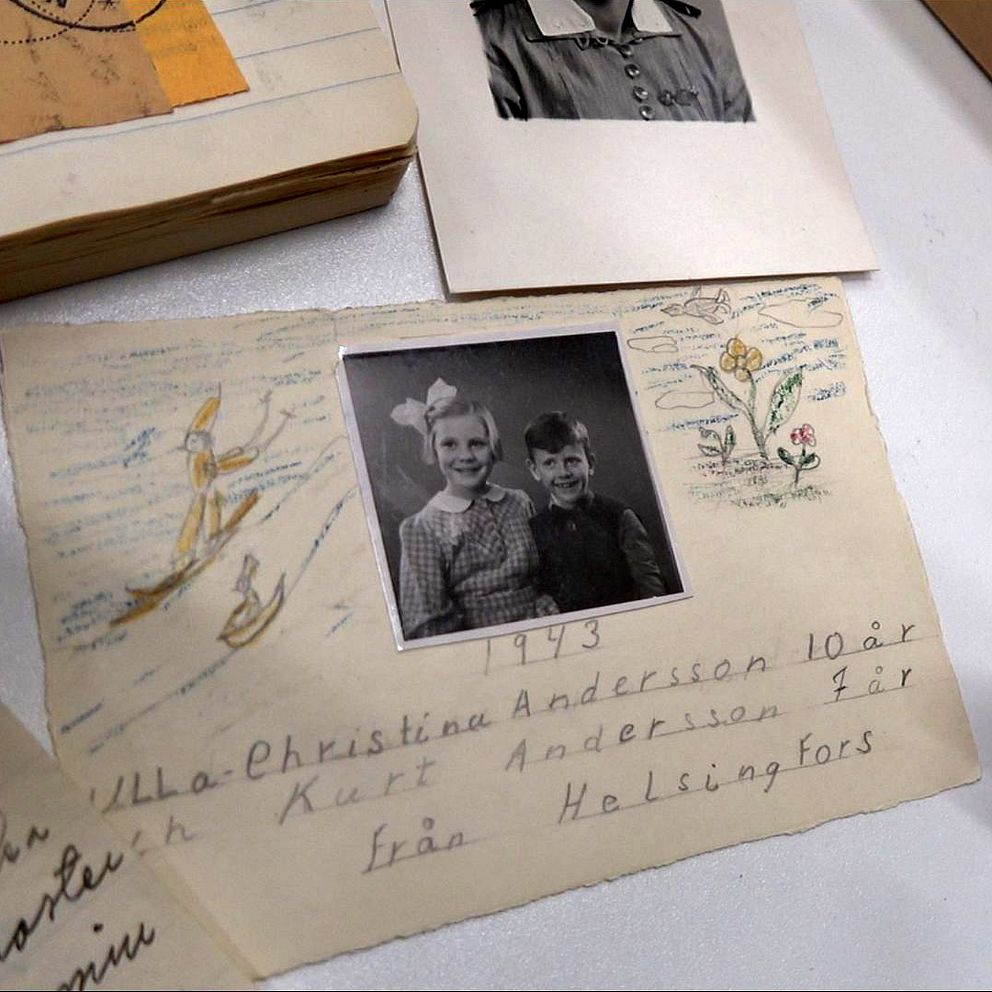 1943
Ulla-Christina Andersson 10 år
Kurt Andersson 7 år
från Helsingfors